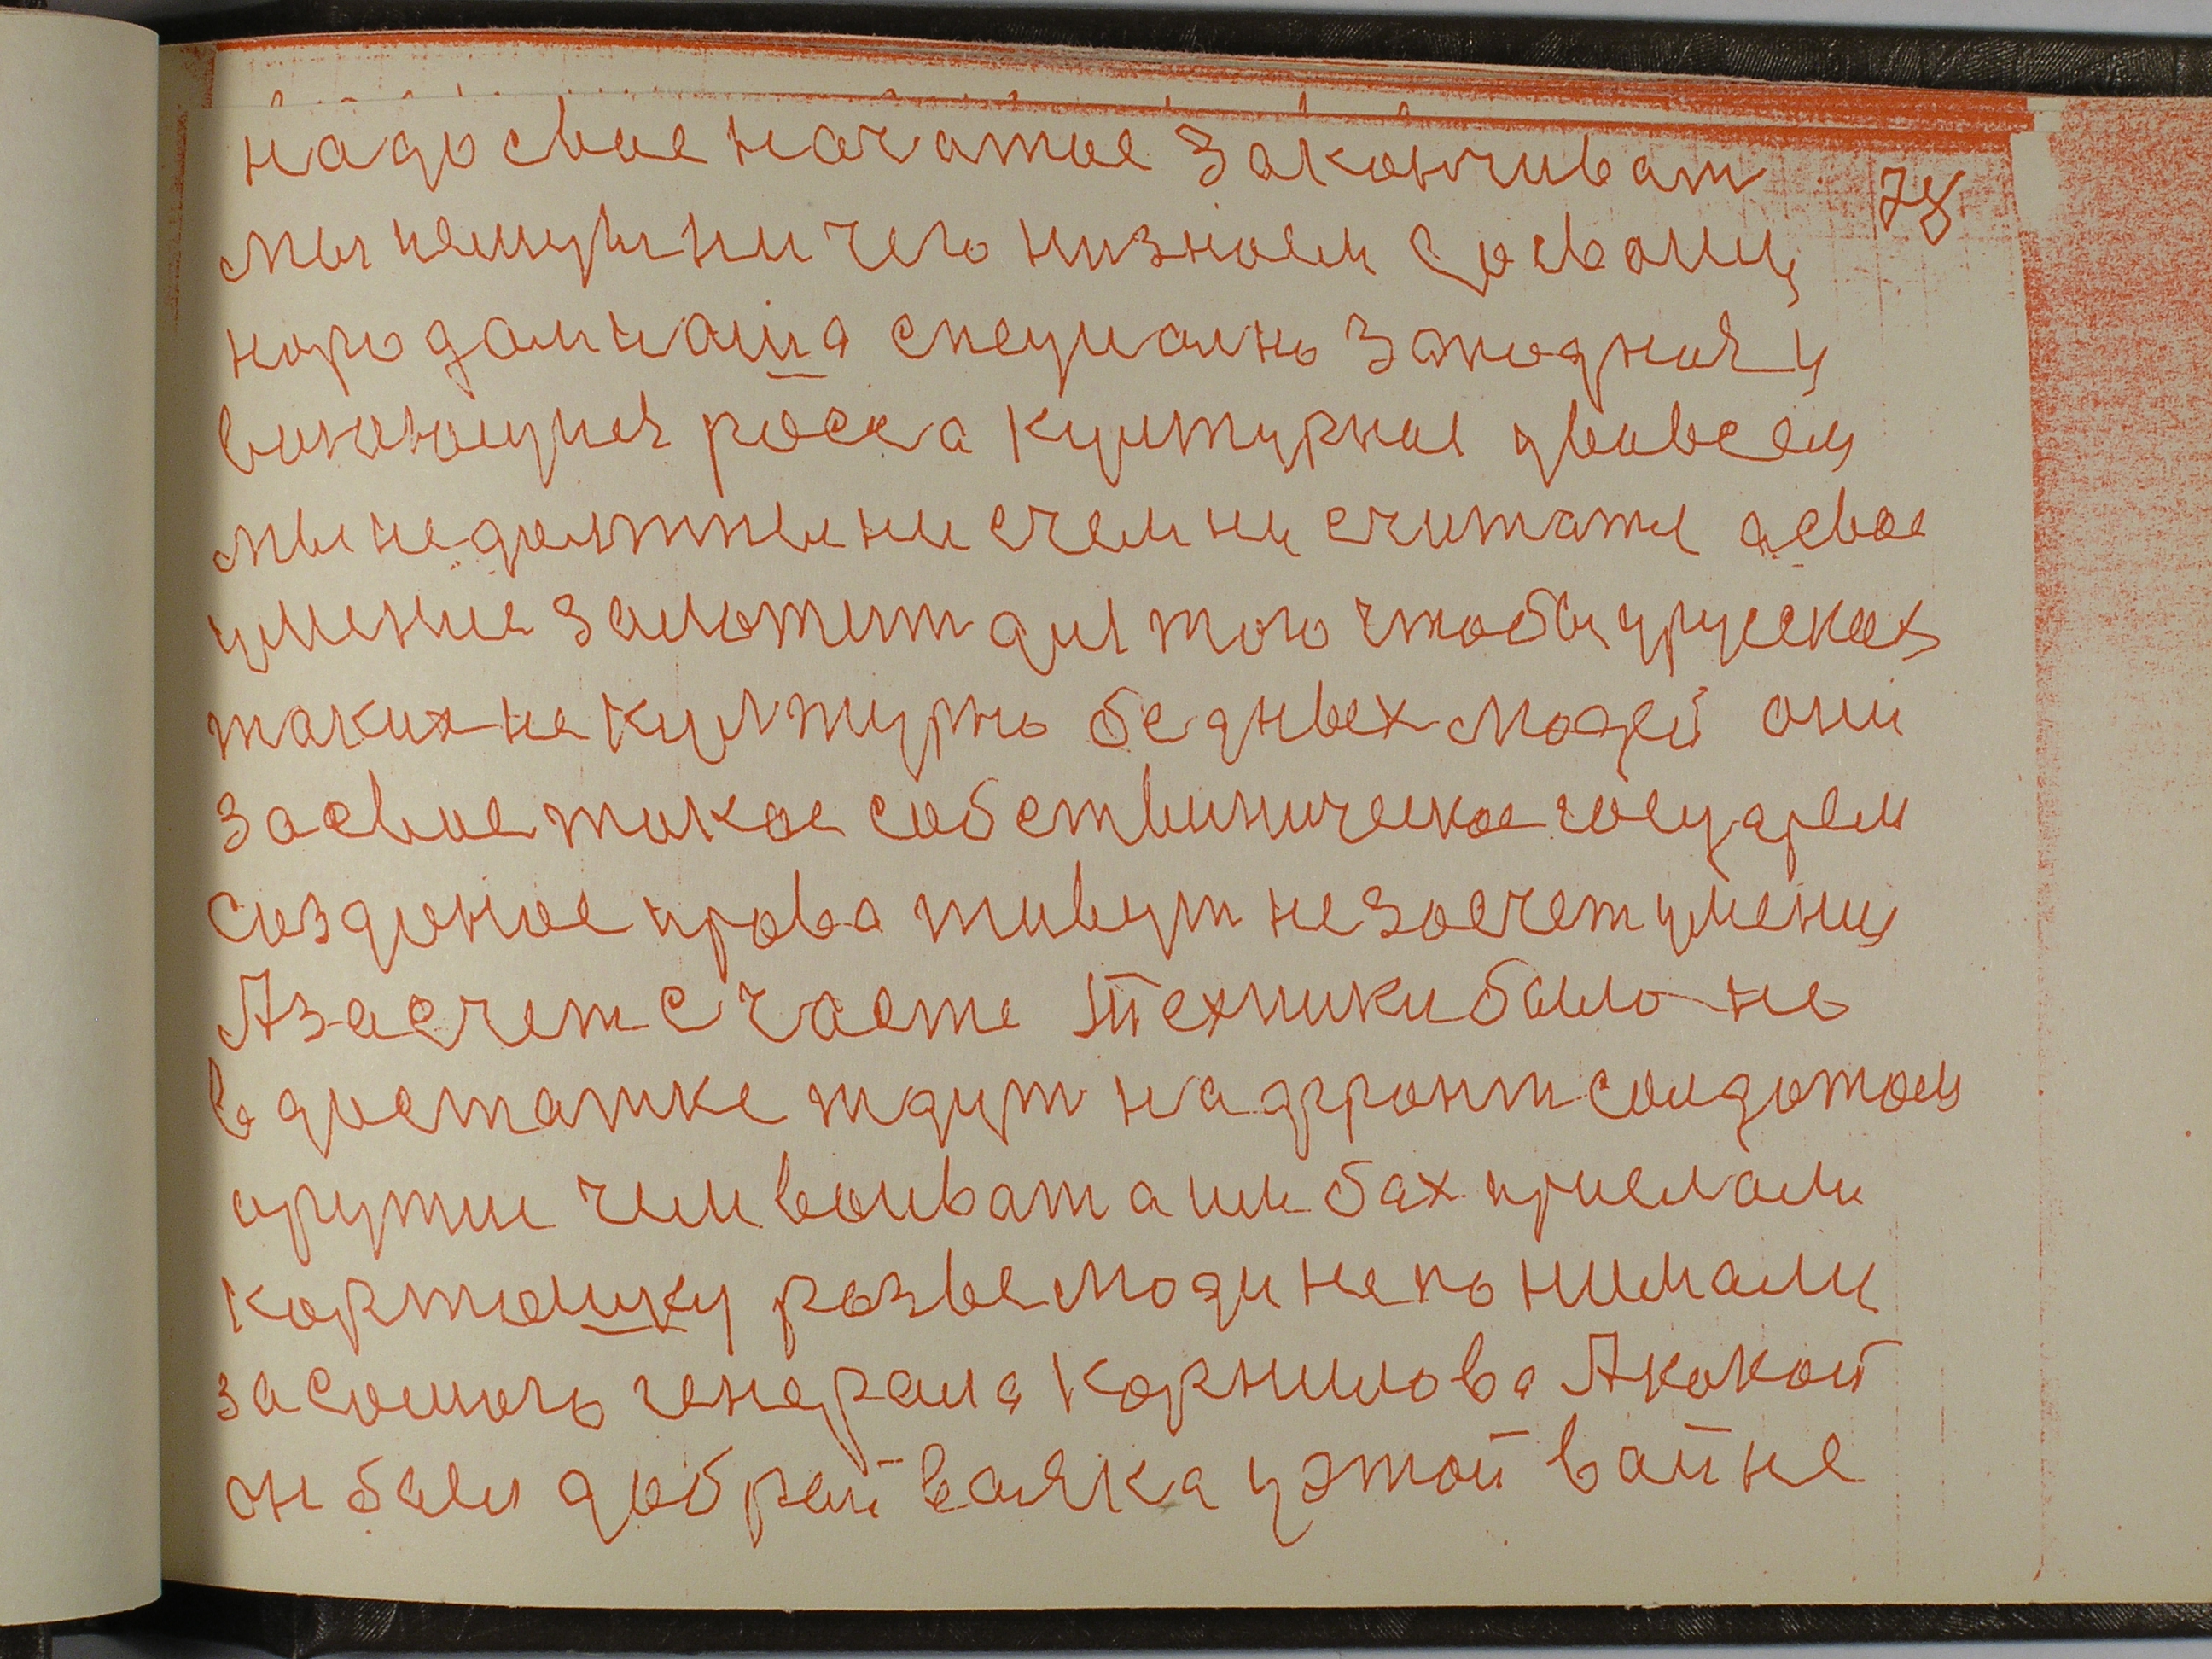 надо свое начатое заканчиват 78
мы пешут ни чего низноем сосвоим
народам наша специално западная и
воюющися раса културная увовсем
мы не должны ни счем ни считатся а свое
умение заложит для того чтобы у руских
таких не културно бедных людей они
за свое такое собственическое государем
созданое права живут не засчет умения
А за счет счасте Техники было не
в достатке ждут на дфронт солдатам
оружие чем воиват а им бах прислали
картошку розве люди не понимали
за самого генерала Корнилова А какой
он был добрай вояка у этой вайне